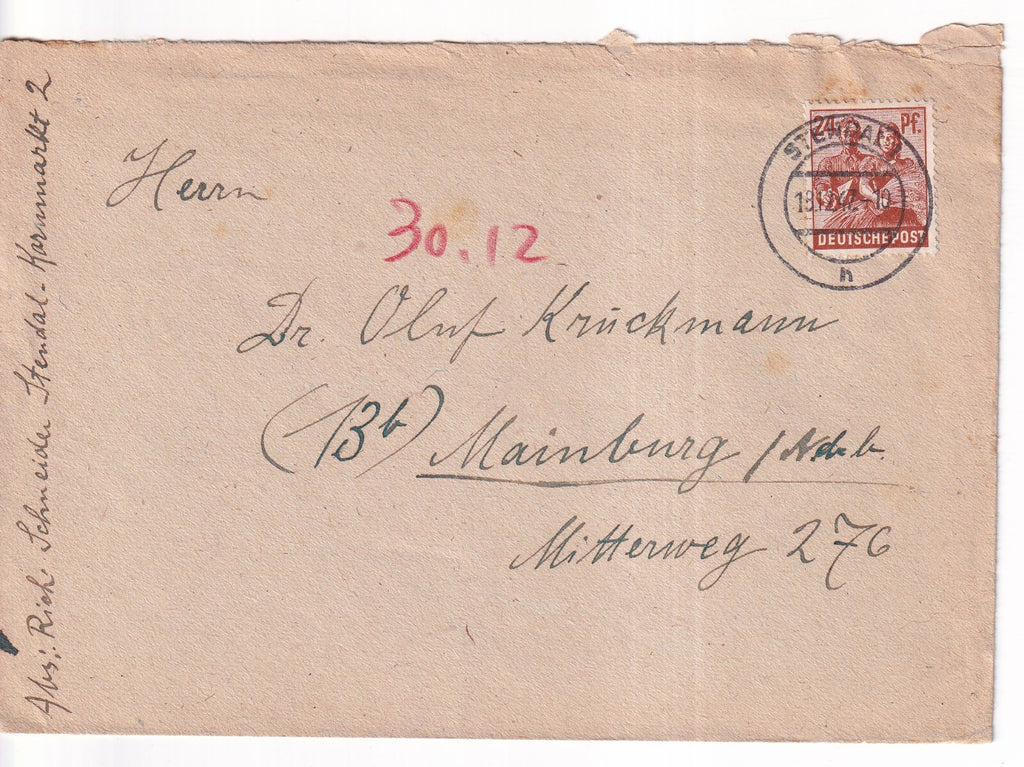 Herrn
30.12
Dr. Oluf Krückmann
(13b) Mainburg /Ndb.
Mitterweg 276
Abs: Rich. Schneider Stendal-Karnmarkt 2
24 Pf.
DEUTSCHE POST
STENDAL
18.12.47.-10
h